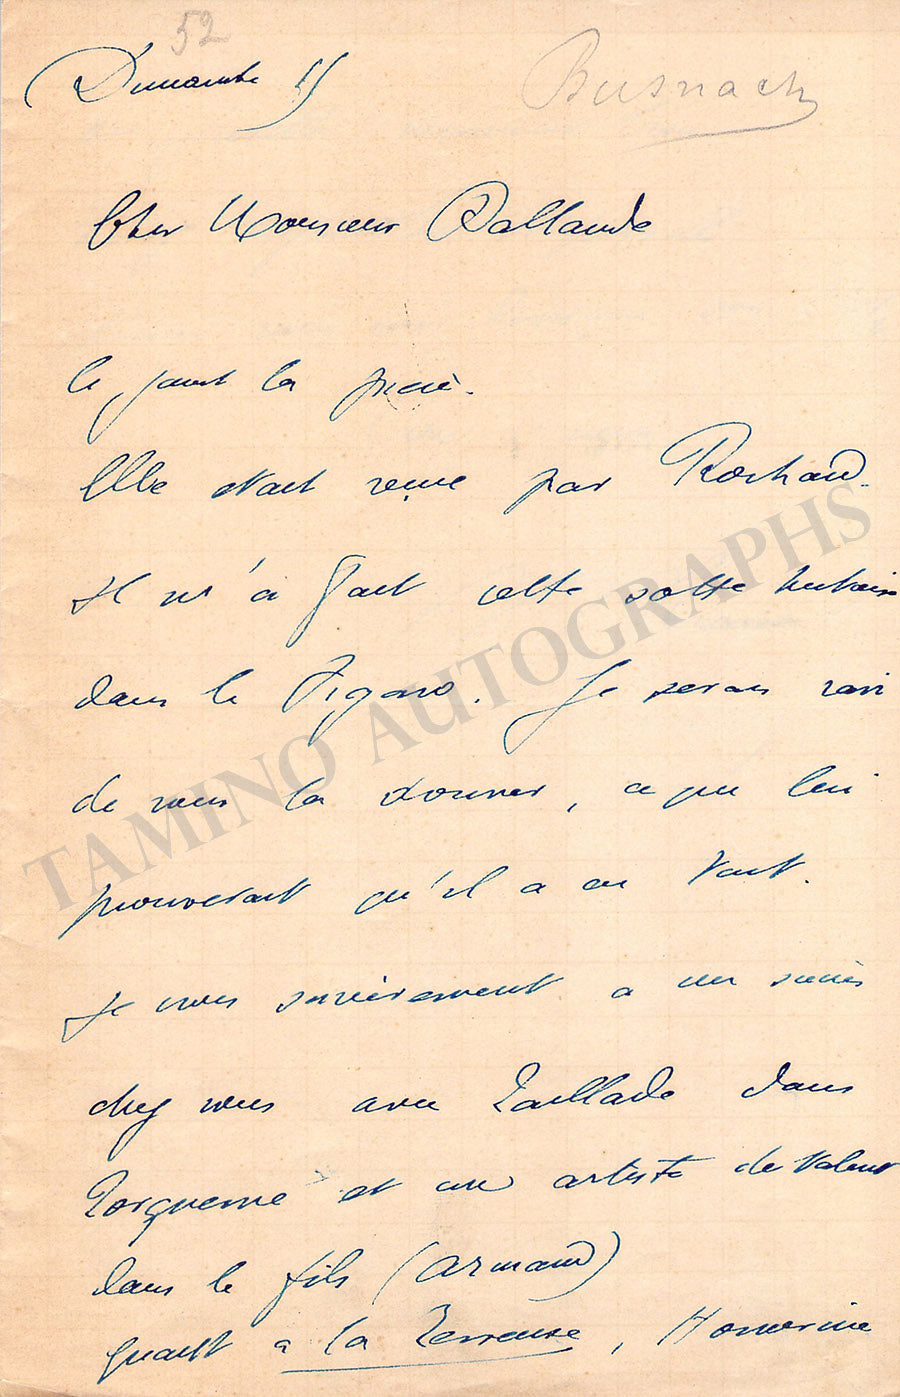 52
Dimanche
Busnach
Cher Monsieur Ballande
la pièce.
Elle était reçue par Rochard.
Il m'a fait cette sotte
dans le Figaro. Je serais ravi
de vous la donner, ce qui lui
prouverait qu'il a eu tort.
Je crois sincèrement à un succès
chez vous avec Taillade dans
et un artiste de talent
dans le fils (Armand)
Quant à la Terreuse, Honorine
TAMINO AUTOGRAPHS